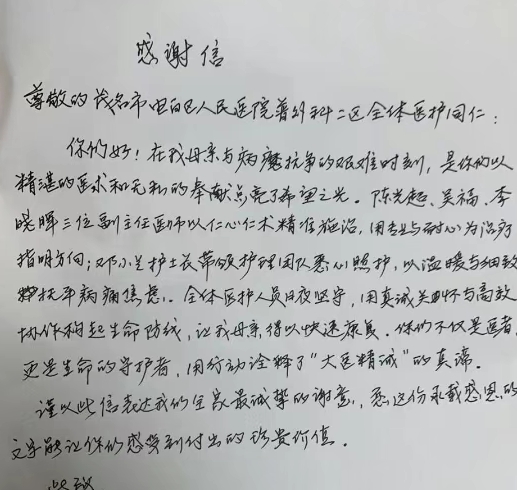 感谢信
尊敬的茂名市电白区人民医院普外科二区全体医护同仁：
你们好！在我母亲与病魔抗争的艰难时刻，是你们以
精湛的医术和无私的奉献点亮了希望之光。陈光超、吴福、李
晓晖三位副主任医师以仁心仁术精准施治，用专业与耐心为治疗
指明方向；邓小兰护士长带领护理团队悉心照护，以温暖与细致
抚平病痛焦虑。全体医护人员日夜坚守，用真诚关怀与高效
协作构起生命防线，让我母亲得以快速康复。你们不仅是医者，
更是生命的守护者，用行动诠释了“大医精诚”的真谛。
谨以此信表达我们全家最诚挚的谢意，愿这份承载感恩的
文字能让你们感受到付出的珍贵价值。
此致